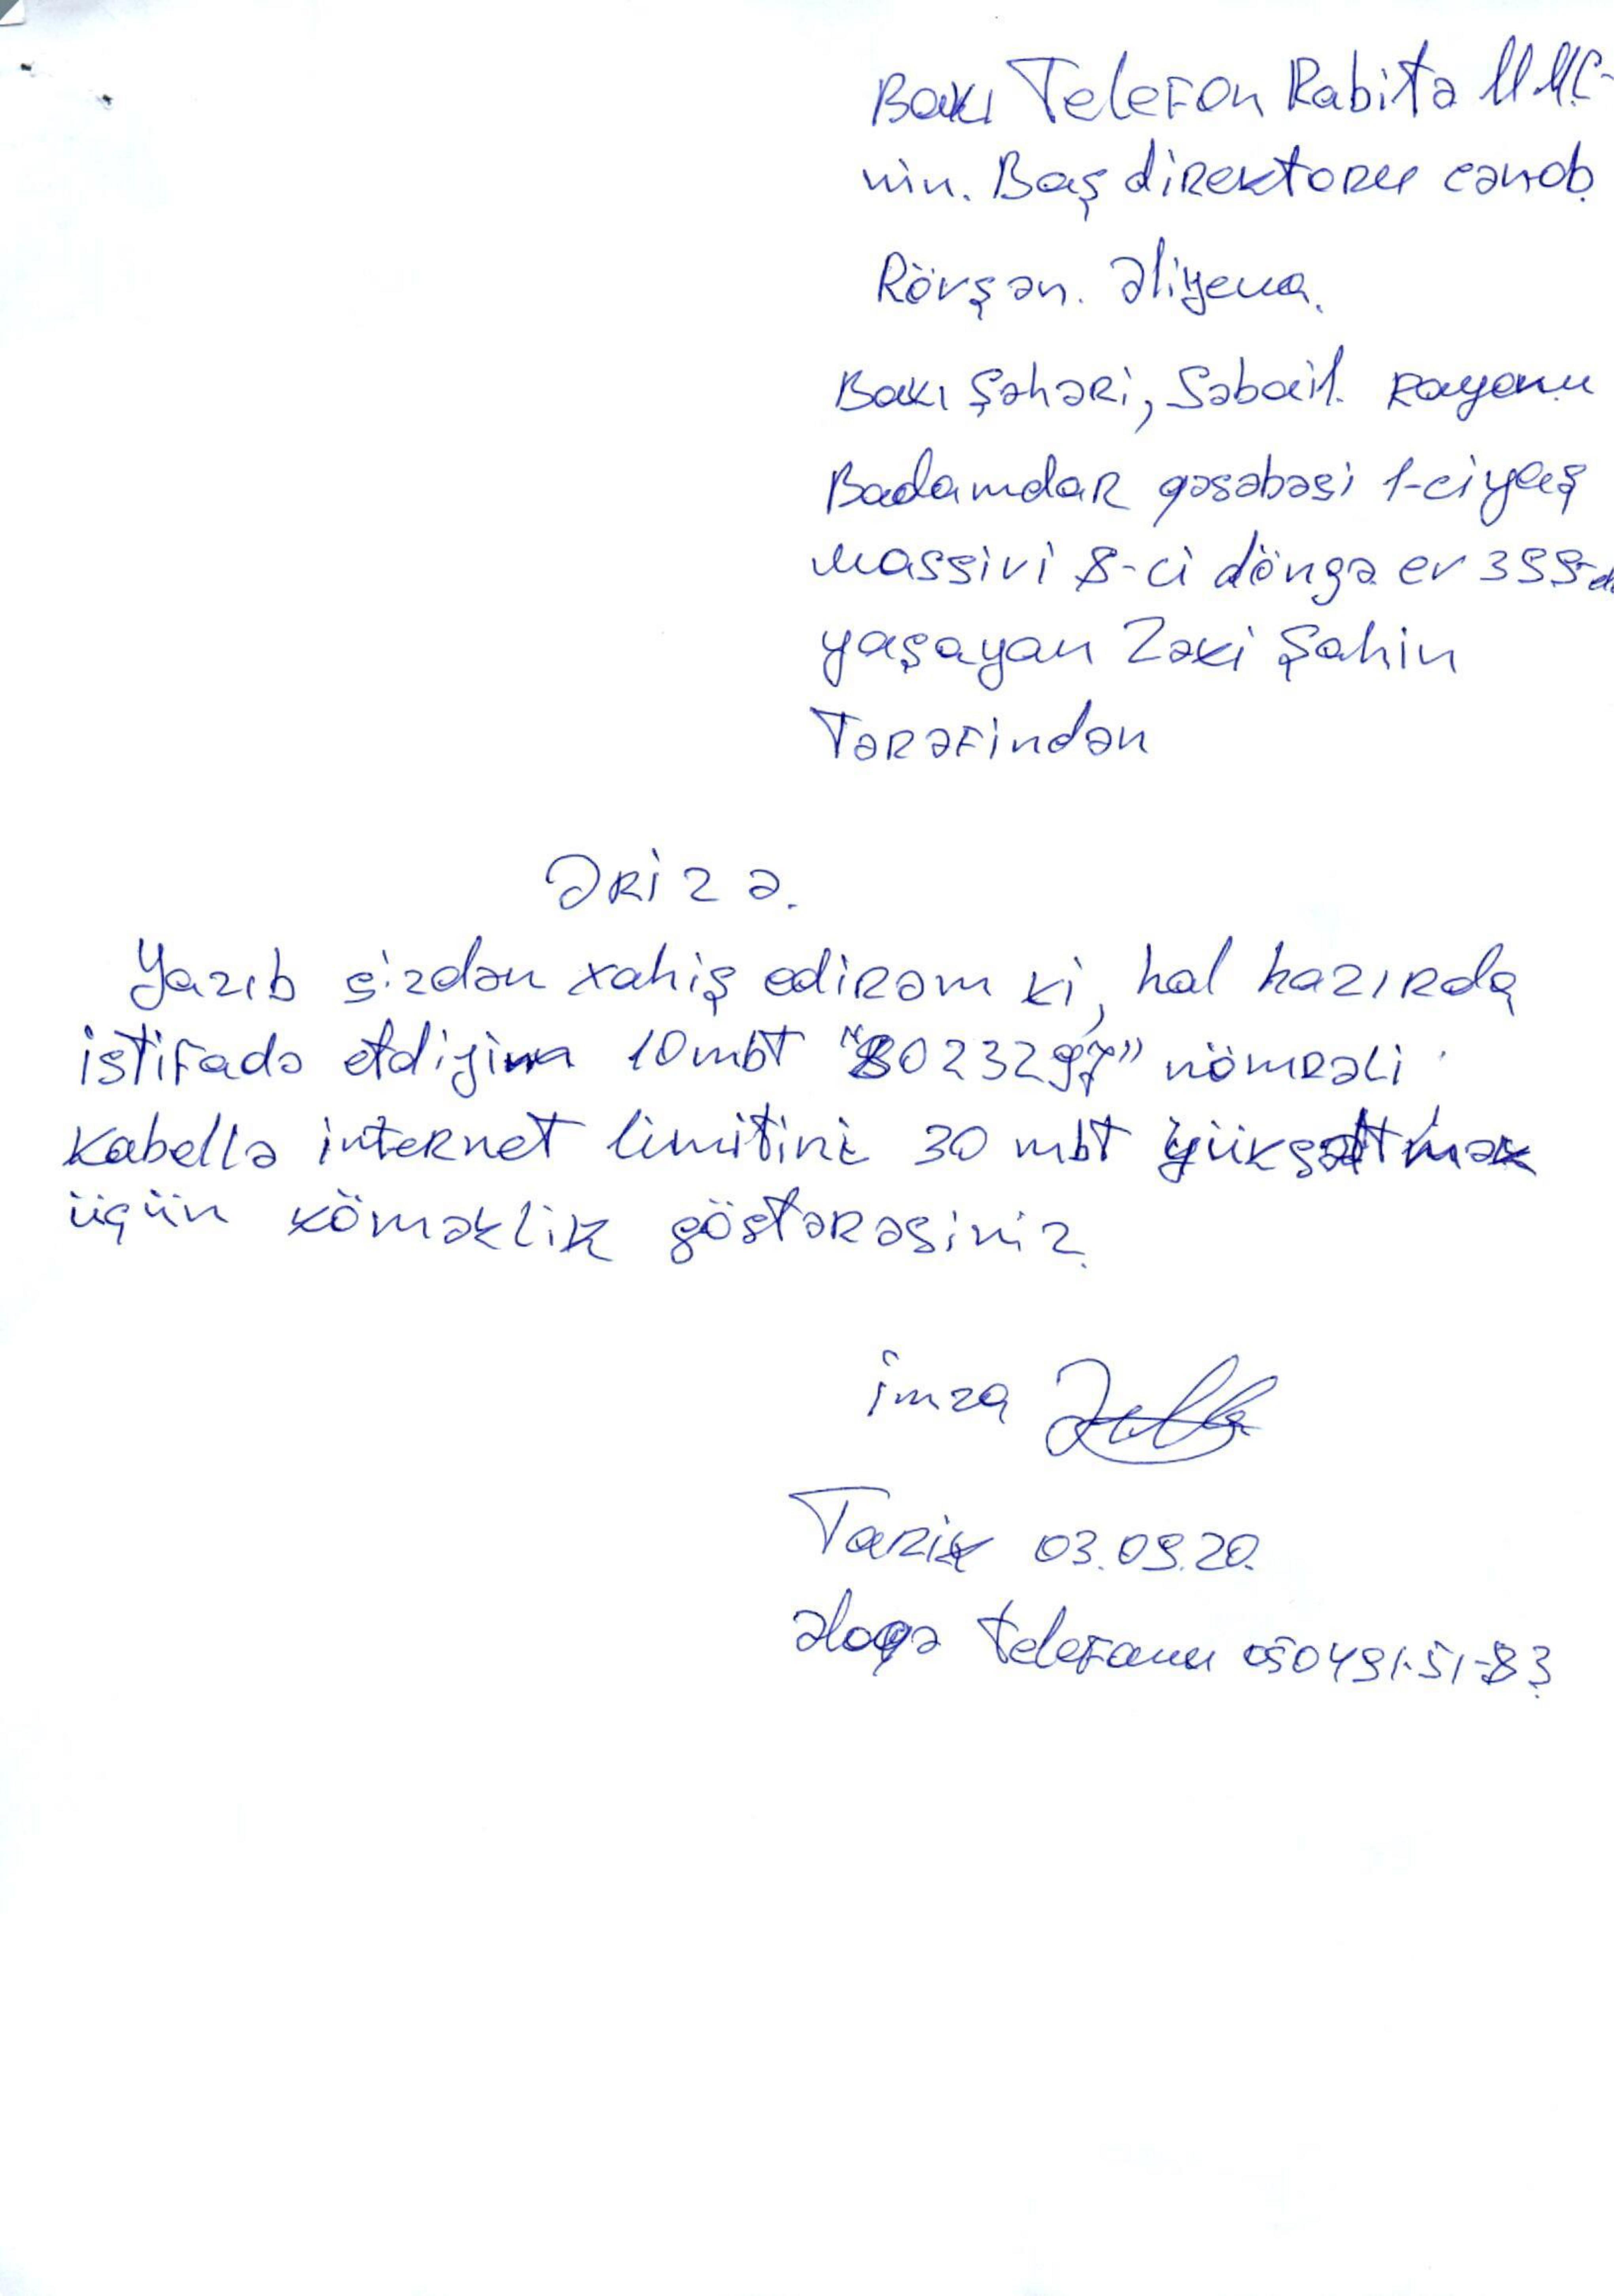 Bakı Telefon Rabitə MMC-
nin. Baş direktoru cənab
Rövşən. Əliyeva.
Bakı Şəhəri, Səbail. Rayonu
Badamdar qəsəbəsi 1-ci yaş
massivi 8-ci döngə ev 399-da
yaşayan Zəki Şahin
Tərəfindən
Ərizə.
Yazıb sizdən xahiş edirəm ki, hal hazırda
istifadə etdiyim 10 mbt "8023297" nömrəli
kabellə internet limitini 30 mbt yüksəltmək
üçün köməklik göstərəsiniz.
imza
Tarix 03.09.20.
əlaqə telefonu 050491-51-83